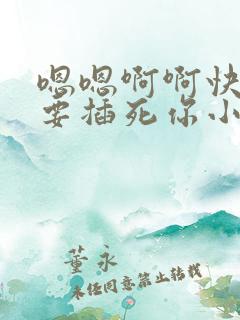 嗯嗯啊啊快
要插死你小
董永
未经同意禁止转载